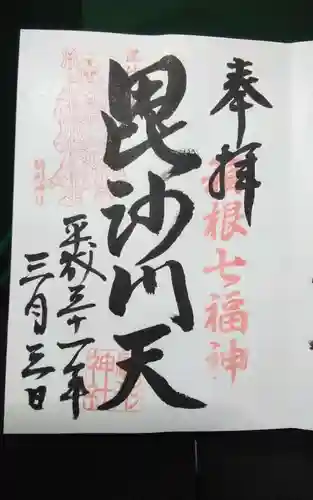 奉拝
箱根七福神
毘沙門天
平成三十一年
三月三日
駒形
神社